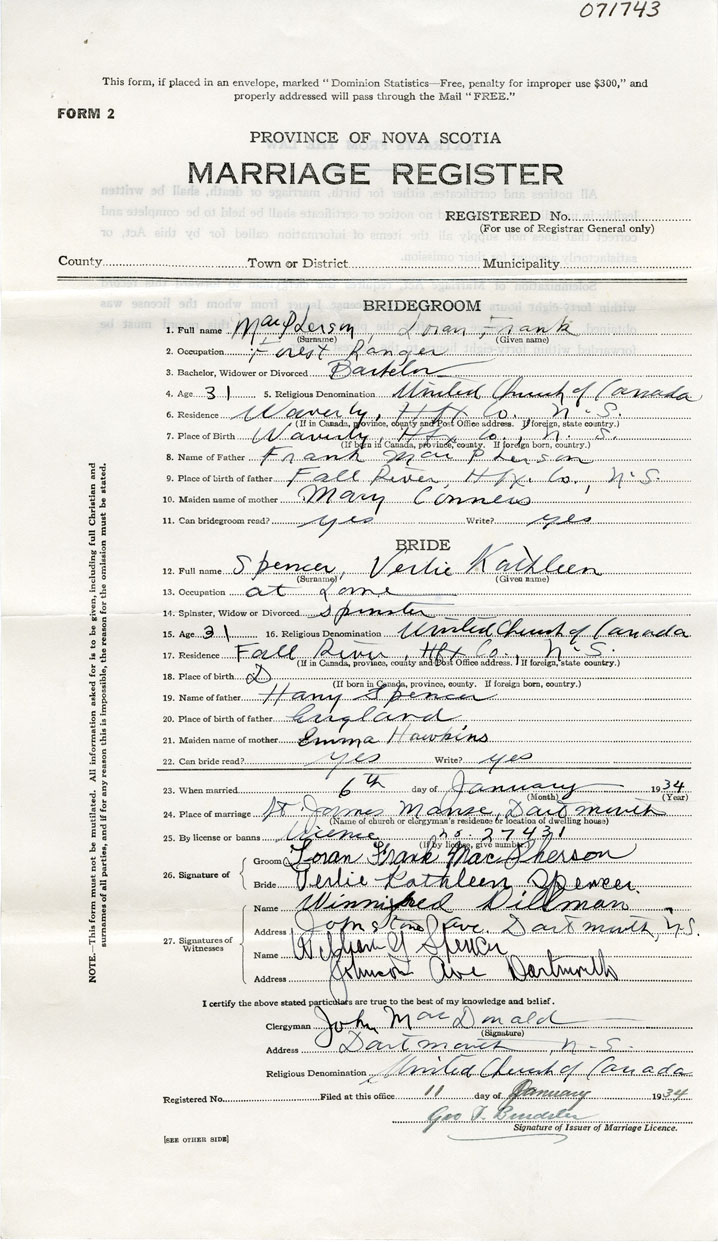 071743
This form, if placed in an envelope, marked "Dominion Statistics—Free, penalty for improper use $300," and
properly addressed will pass through the Mail "FREE."
FORM 2
PROVINCE OF NOVA SCOTIA
MARRIAGE REGISTER
REGISTERED No.
(For use of Registrar General only)
County Town or District Municipality
BRIDEGROOM
1. Full name MacPherson, Loran Frank
(Surname) (Given name)
2. Occupation Forest Ranger
3. Bachelor, Widower or Divorced Bachelor
4. Age 31 5. Religious Denomination United Church of Canada
6. Residence Waverly, Hfx Co. N.S.
(If in Canada, province, county and Post Office address. If foreign, state country.)
7. Place of Birth Waverly, Hfx Co., N.S.
(If born in Canada, province, county. If foreign born, country.)
8. Name of Father Frank MacPherson
9. Place of birth of father Fall River, Hfx. Co., N.S.
10. Maiden name of mother Mary Conners
11. Can bridegroom read? yes Write? yes
BRIDE
12. Full name Spencer, Verlie Kathleen
(Surname) (Given name)
13. Occupation at home
14. Spinster, Widow or Divorced Spinster
15. Age 31 16. Religious Denomination United Church of Canada
17. Residence Fall River, Hfx Co. N.S.
(If in Canada, province, county and Post Office address. If foreign, state country.)
18. Place of birth
(If born in Canada, province, county. If foreign born, country.)
19. Name of father Harry Spencer
20. Place of birth of father England
21. Maiden name of mother Emma Hawkins
22. Can bride read? yes Write? yes
23. When married 6th day of January 1934
(Month) (Year)
24. Place of marriage St. James Manse, Dartmouth
(Name of church or clergyman's residence or location of dwelling house)
25. By license or banns License no. 27431
(If by license, give number)
26. Signature of
Groom Loran Frank MacPherson
Bride Verlie Kathleen Spencer.
27. Signatures of Witnesses
Name Winnifred Dillman
Address Johnstone Ave. Dartmouth, N.S.
Name William Spencer
Address Johnson Ave Dartmouth
I certify the above stated particulars are true to the best of my knowledge and belief.
Clergyman John MacDonald
(Signature)
Address Dartmouth N.S.
Religious Denomination United Church of Canada
Registered No. Filed at this office 11 day of January 1934
Geo
Signature of Issuer of Marriage Licence.
[SEE OTHER SIDE]
NOTE.—This form must not be mutilated. All information asked for is to be given, including full Christian and
surnames of all parties, and if for any reason this is impossible, the reason for the omission must be stated.